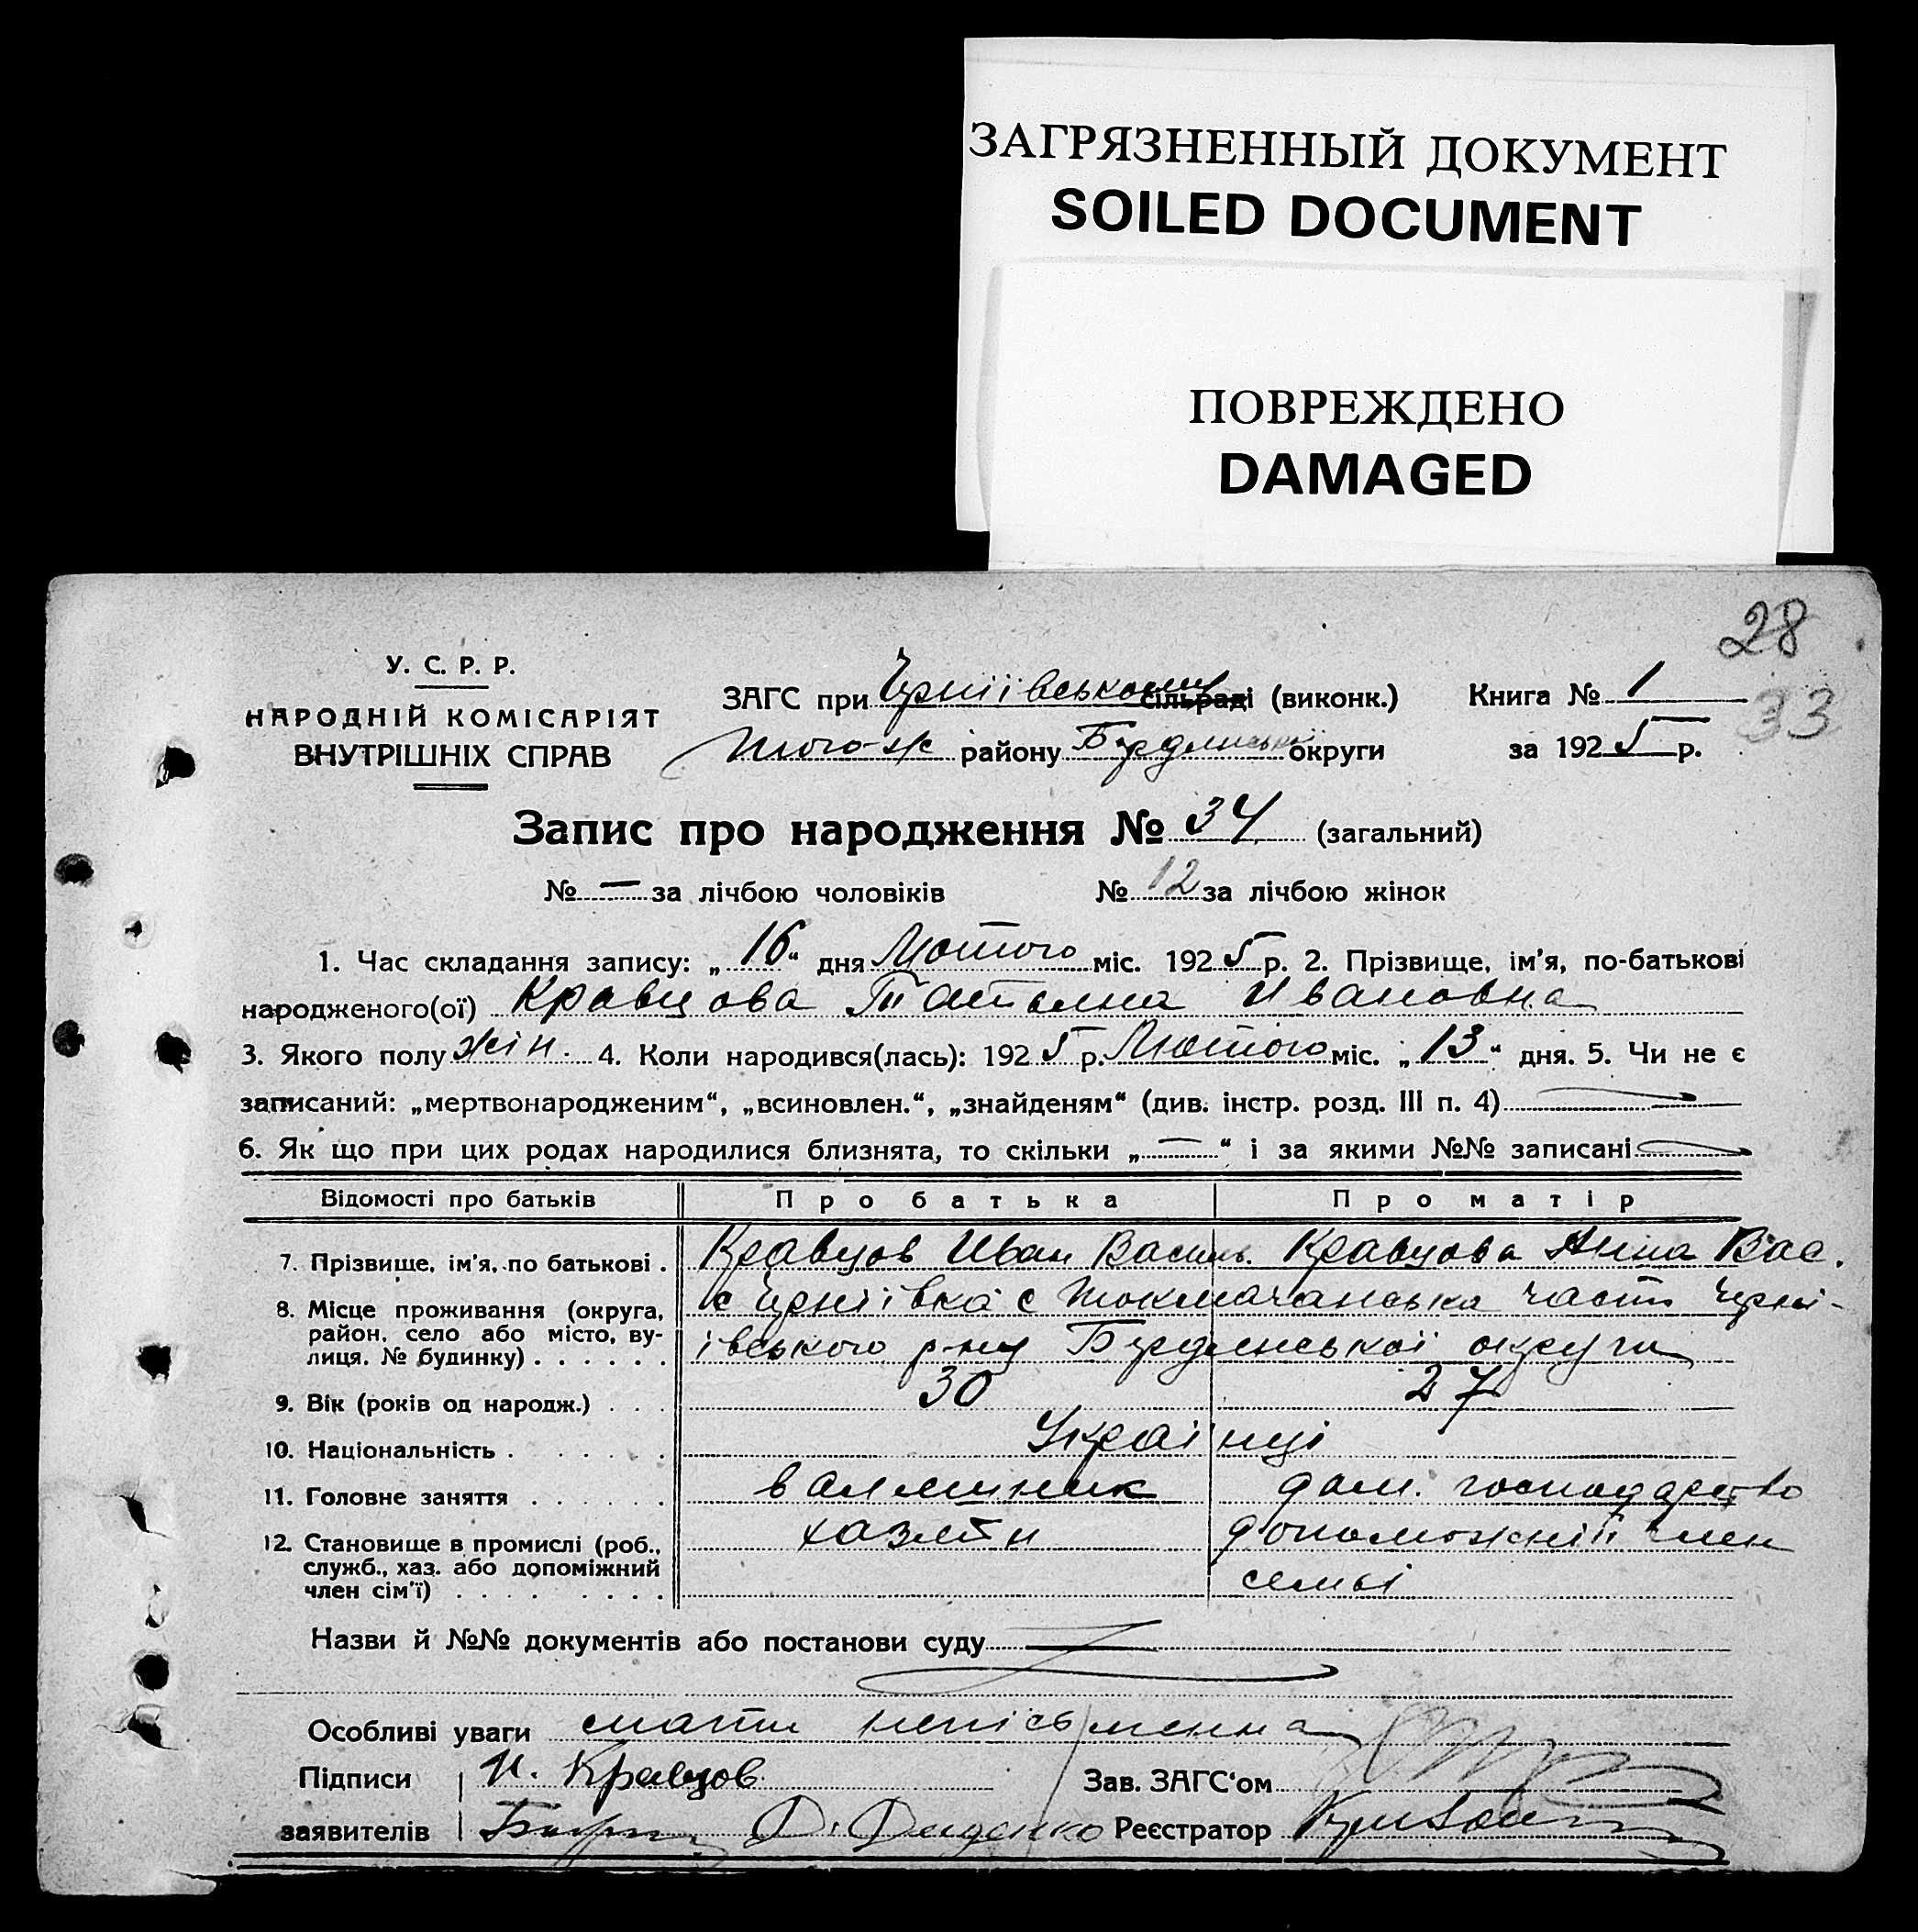 ЗАГРЯЗНЕННЫЙ ДОКУМЕНТ
SOILED DOCUMENT
ПОВРЕЖДЕНО
DAMAGED
28
33
У. С. Р. Р.
НАРОДНІЙ КОМІСАРІЯТ
ВНУТРІШНІХ СПРАВ
ЗАГС при Черніівському сільраді (виконк.) Книга № 1
того-ж району Бердянської округи за 1925 р.
Запис про народження № 34 (загальний)
№ — за лічбою чоловіків № 12 за лічбою жінок
1. Час складання запису: „16“ дня Лютого міс. 1925 р. 2. Прізвище, ім'я, по-батькові
народженого(ої) Кравцова Татьяна Ивановна
3. Якого полу жін. 4. Коли народився(лась): 1925 р. Лютого міс. „13“ дня. 5. Чи не є
записаний: „мертвонародженим“, „всиновлен.“, „знайденям“ (див. інстр. розд. III п. 4) —
6. Як що при цих родах народилися близнята, то скільки „—“ і за якими №№ записані —
Відомості про батьків Про батька Про матір
7. Прізвище, ім'я, по батькові . Кравцов Иван Василь. Кравцова Анна Вас.
8. Місце проживання (округа, район, село або місто, вулиця. № будинку) . . . . . . с Черніівка с Токмачанська часть Черні-
івського р-ну Бердянської округи
9. Вік (років од народж.) . . . 30 27
10. Національність . . . . . . Українці
11. Головне заняття . . . . . . дом. господарство
12. Становище в промислі (роб., служб., хаз. або допоміжний член сім'ї) . . . . . . . . хазяїн допоможній член
семьі
Назви й №№ документів або постанови суду —
Особливі уваги мати непісьменна
Підписи И. Кравцов Зав. ЗАГС'ом
заявителів Д. Диденко Реєстратор